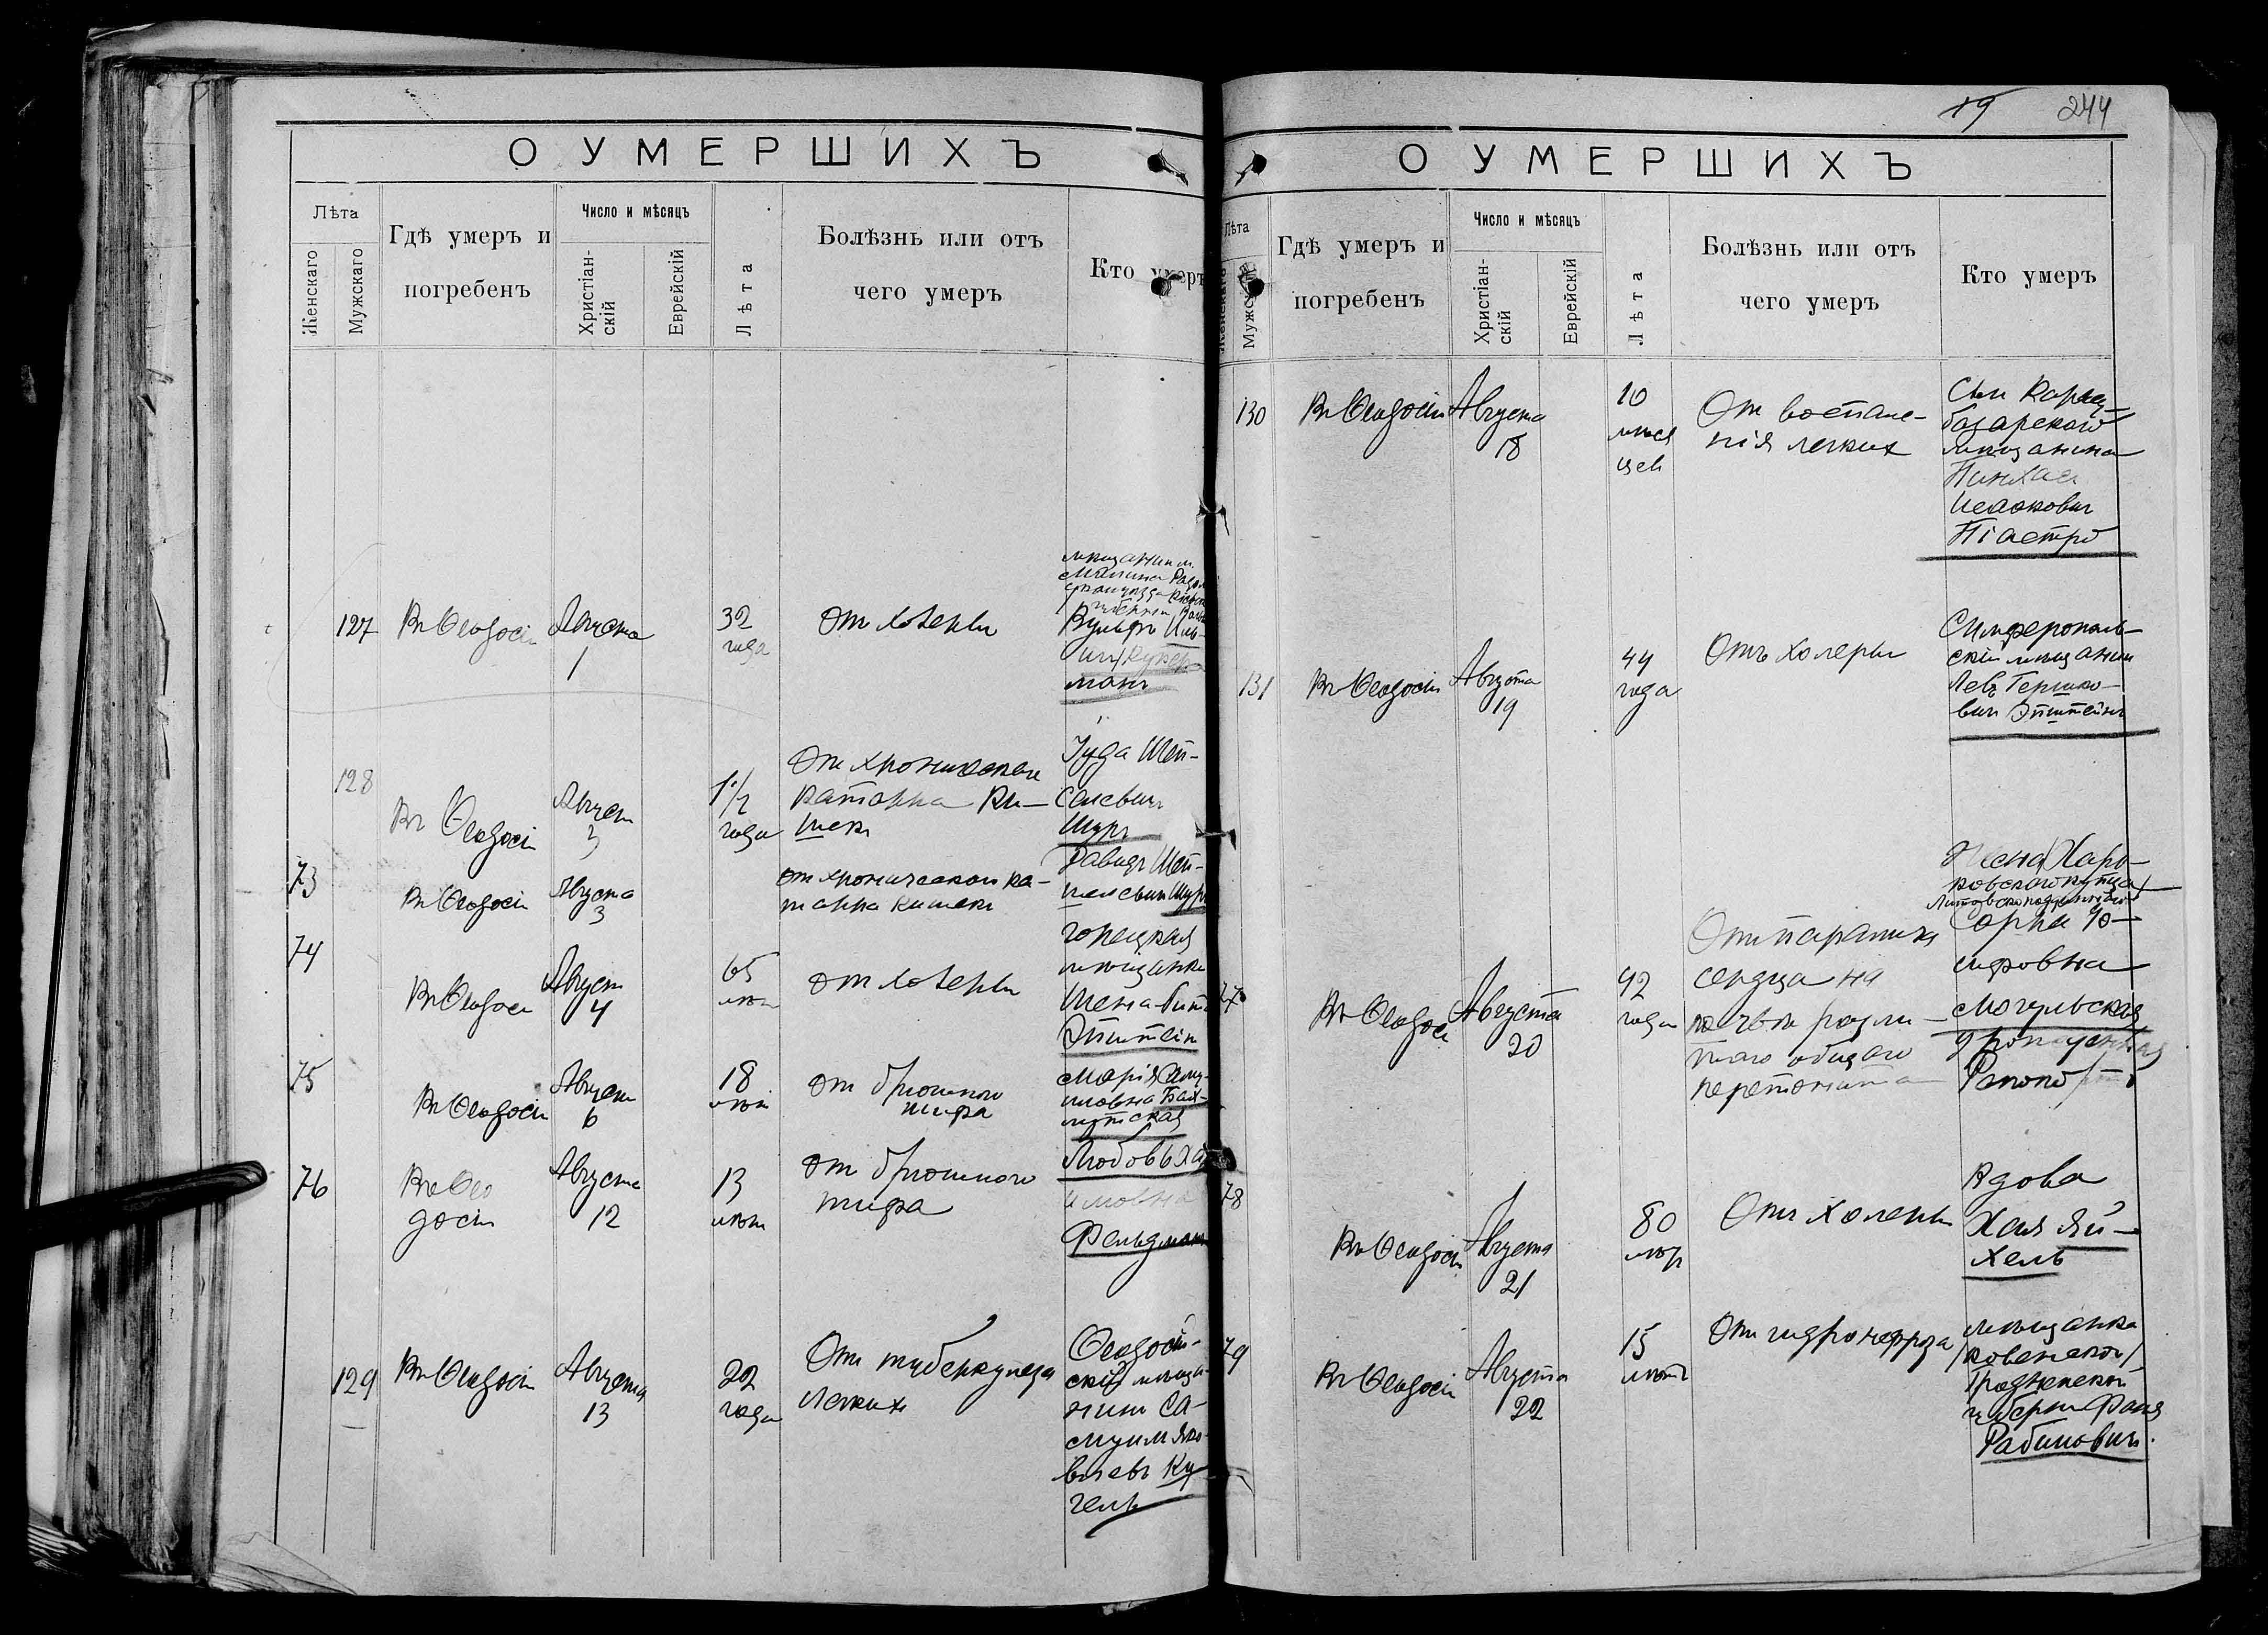 19 244
О УМЕРШИХЪ
Лѣта
Женскаго
Мужскаго
Гдѣ умеръ и
погребенъ
Число и мѣсяцъ
Христіан-
скій
Еврейскій
Лѣта
Болѣзнь или отъ
чего умеръ
Кто умеръ
127
Въ Ѳеодосіи
Августа
1
32
года
От холеры
мѣщанинъ
Вульфъ
манъ
128
Въ Ѳеодосіи
Август
3
1 1/2
года
От хроническаго
катарра ки-
шекъ
Іуда Шеп-
селевичъ
Шуръ
73
Въ Ѳеодосіи
Августа
3
от хроническаго ка-
тарра кишекъ
Давидъ Шеп-
шелевичъ Шуръ
74
Въ Ѳеодосіи
Август
4
65
лѣт
от холеры
мѣщанка
Эпштейнъ
75
Въ Ѳеодосіи
Август
6
18
лѣт
от брюшного
тифа
Марія
76
Въ Ѳео
досіи
Августа
12
13
лѣт
от брюшного
тифа
Любовь
Фельдман
129
Въ Ѳеодосіи
Августа
13
22
года
От туберкулеза
легкихъ
Ѳеодосій-
скій мѣща-
нинъ Са-
муил Яко-
влевъ Ку-
гель
О УМЕРШИХЪ
Лѣта
Женскаго
Мужскаго
Гдѣ умеръ и
погребенъ
Число и мѣсяцъ
Христіан-
скій
Еврейскій
Лѣта
Болѣзнь или отъ
чего умеръ
Кто умеръ
130
Въ Ѳеодосіи
Августа
18
10
мѣся
цев
От воспале-
нія легких
Сын Карасу-
базарскаго
мѣщанина
Пинхас
Исаакович
Піастро
131
Въ Ѳеодосіи
Августа
19
44
года
Отъ холеры
Симферополь-
скій мѣщанин
Левъ Гершко-
вич Эпштейнъ
77
Въ Ѳеодосіи
Августа
20
42
года
От паралича
сердца на
почвѣ разли-
таго общаго
перетонита
Жена Харь-
ковского купца
Сарра Ю-
Могульская
урожденная
78
Въ Ѳеодосіи
Августа
21
80
лѣт
Отъ холеры
Вдова
Хая Яй-
хель
79
Въ Ѳеодосіи
Августа
22
15
лѣтъ
От гидронефроза
мѣщанка
Гродненской
губерніи Фаня
Рабиновичъ.